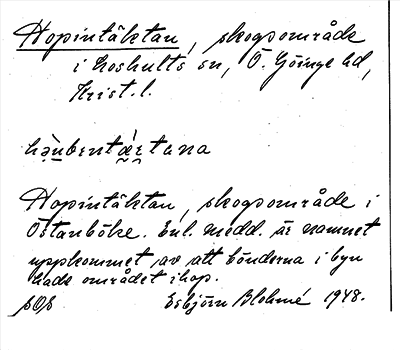 Hopintäktan, skogsområde
i Loshults sn, Ö. Göinge hd,
Krist. l.
Hopintäktan, skogsområde i
Östanböke. Enl. medd. är namnet
uppkommet av att bönderna i byn
hade området ihop.
Esbjörn Blohmé 1948.